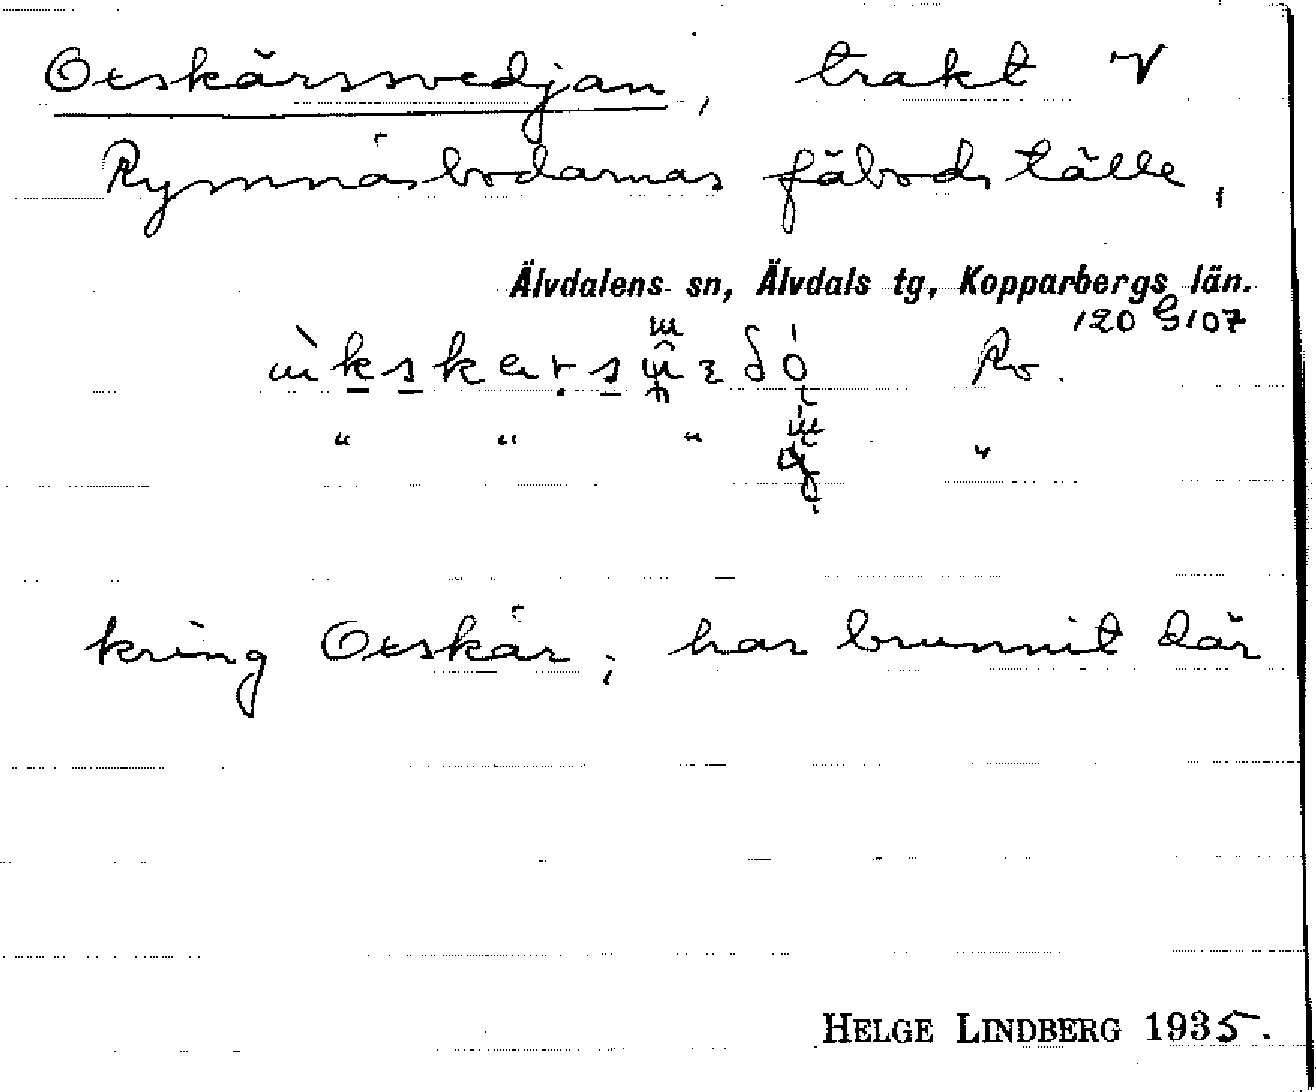 Oxskärssvedjan, trakt V
Rymnäsbodarnas fäbodställe,
Älvdalens sn, Älvdals tg, Kopparbergs län.
120 G107
Ro.
" " " "
kring Oxskär; har brunnit där
HELGE LINDBERG 1935.